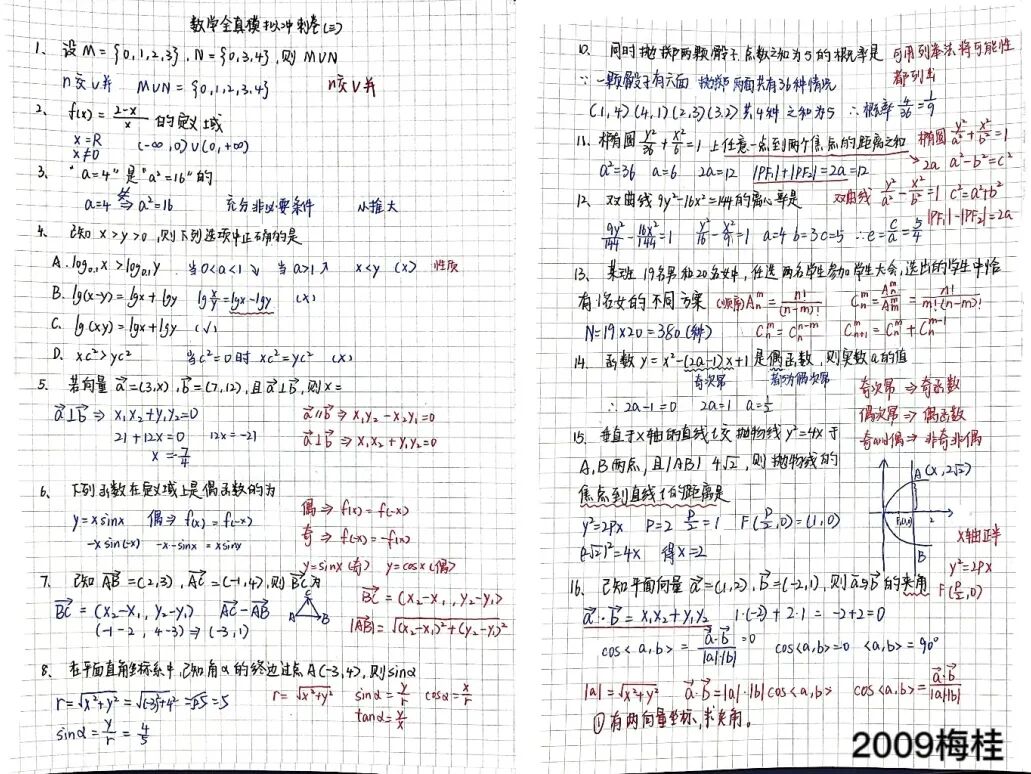 数学全真模拟冲刺卷(三)
1、设M={0,1,2,3},N={0,3,4},则M∪N
∩交∪并 M∪N={0,1,2,3,4} ∩交∪并
2、f(x)=(2-x)/x 的定义域
x=R
x≠0 (-∞,0)∪(0,+∞)
3、"a=4"是"a²=16"的
a=4 ⇒ a²=16 充分非必要条件 小推大
4、已知x>y>0,则下列选项中正确的是
A.log₀.₁x>log₀.₁y 当0<a<1↘ 当a>1↗ x<y (×) 性质
B.lg(x-y)=lgx+lgy lg x/y=lgx-lgy (×)
C.lg(xy)=lgx+lgy (√)
D.xc²>yc² 当c²=0时 xc²=yc² (×)
5、若向量a⃗=(3,x),b⃗=(7,12),且a⃗⊥b⃗,则x=
a⃗⊥b⃗ ⇒ x₁x₂+y₁y₂=0 a⃗∥b⃗ ⇒ x₁y₂-x₂y₁=0
21+12x=0 12x=-21 a⃗⊥b⃗ ⇒ x₁x₂+y₁y₂=0
x=-7/4
6、下列函数在定义域上是偶函数的为
y=xsinx 偶⇒ f(x)=f(-x) 偶⇒f(x)=f(-x)
-xsin(-x) -x·-sinx=xsinx 奇⇒f(-x)=-f(x)
y=sinx(奇) y=cosx(偶)
7、已知AB⃗=(2,3),AC⃗=(-1,4),则BC⃗为
BC⃗=(x₂-x₁,y₂-y₁) AC⃗-AB⃗ A B C BC⃗=(x₂-x₁,y₂-y₁)
(-1-2,4-3)⇒(-3,1) |AB⃗|=√((x₂-x₁)²+(y₂-y₁)²)
8、在平面直角坐标系中,已知角α的终边过点A(-3,4),则sinα
r=√(x²+y²)=√((-3)²+4²)=√25=5 r=√(x²+y²) sinα=y/r cosα=x/r
sinα=y/r=4/5 tanα=y/x
10、同时抛掷两颗骰子,点数之和为5的概率是 可用列举法将可能性
都列出
∵一颗骰子有六面 抛掷两面共有36种情况
(1,4)(4,1)(2,3)(3,2)共4种 之和为5 ∴概率4/36=1/9
11、椭圆y²/36+x²/6=1上任意一点到两个焦点的距离之和 椭圆y²/a²+x²/b²=1
a²=36 a=6 2a=12 |PF₁|+|PF₂|=2a=12 2a a²-b²=c²
12、双曲线9y²-16x²=144的离心率是 双曲线y²/a²-x²/b²=1 c²=a²+b²
9y²/144-16x²/144=1 y²/16-x²/9=1 a=4 b=3 c=5 ∴e=c/a=5/4 |PF₁|-|PF₂|=2a
13、某班19名男和20名女中,任选两名学生参加学生大会,选出的学生中恰
有1名女的不同方案 (顺序)Aₙᵐ=n!/(n-m)! Cₙᵐ=Aₙᵐ/Aₘᵐ=n!/m!(n-m)!
N=19×20=380(种) Cₙᵐ=Cₙⁿ⁻ᵐ Cₙ₊₁ᵐ=Cₙᵐ+Cₙᵐ⁻¹
14、函数y=x²-(2a-1)x+1是偶函数,则实数a的值
奇次幂 偶次幂 奇次幂⇒奇函数
∴2a-1=0 2a=1 a=1/2 偶次幂⇒偶函数
奇和偶⇒非奇非偶
15、垂直于x轴的直线l交抛物线y²=4x于
A,B两点,且|AB| 4√2,则抛物线的
焦点到直线l的距离是
A(x,2√2) 2 B
y²=2px P=2 P/2=1 F(P/2,0)=(1,0) x轴正半
(2√2)²=4x 得x=2 y²=2px
F(P/2,0)
16、已知平面向量a⃗=(1,2),b⃗=(-2,1),则a⃗与b⃗的夹角
a⃗·b⃗=x₁x₂+y₁y₂ 1·(-2)+2·1=-2+2=0
cos<a,b>=a⃗·b⃗/|a|·|b|=0 cos<a,b>=0 <a,b>=90°
|a|=√(x²+y²) a⃗·b⃗=|a|·|b|cos<a,b> cos<a,b>=a⃗·b⃗/|a||b|
①有两向量坐标,求夹角。
2009梅桂